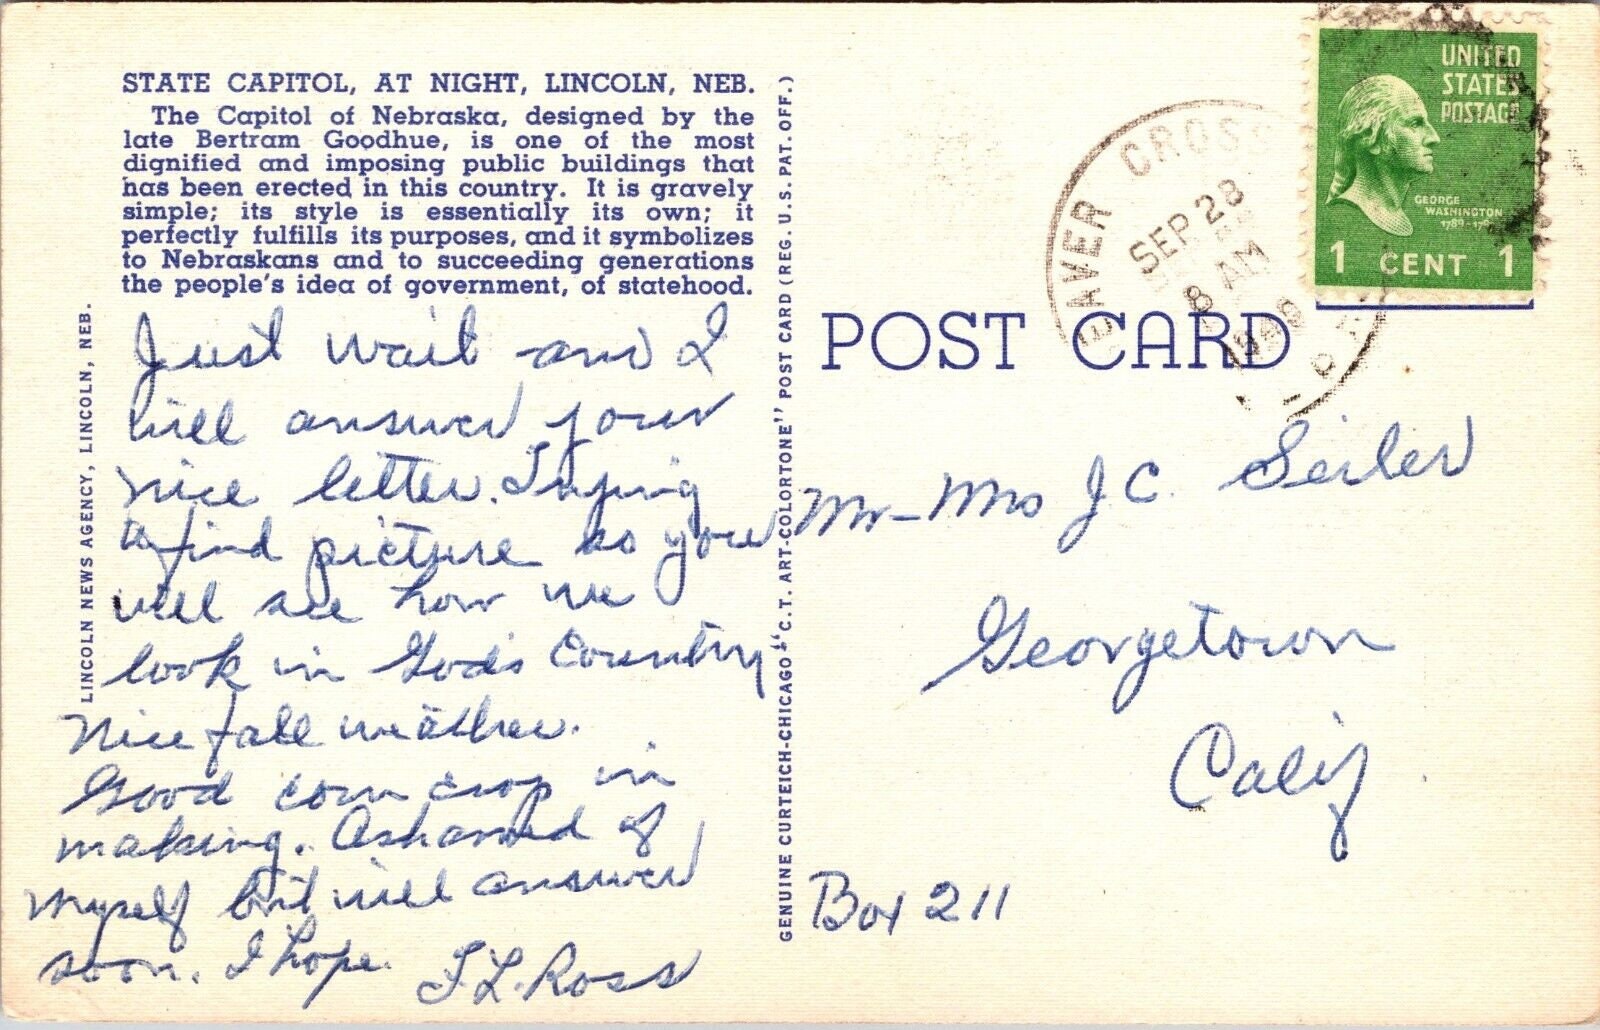 STATE CAPITOL, AT NIGHT, LINCOLN, NEB.
The Capitol of Nebraska, designed by the
late Bertram Goodhue, is one of the most
dignified and imposing public buildings that
has been erected in this country. It is gravely
simple; its style is essentially its own; it
perfectly fulfills its purposes, and it symbolizes
to Nebraskans and to succeeding generations
the people's idea of government, of statehood.
Just wait and I
will answer your
nice letter. Trying
to find picture so you
will see how we
look in God's Country
Nice fall weather.
Good corn crop in
making. Ashamed of
myself but will answer
soon. I hope.
Ross
LINCOLN NEWS AGENCY, LINCOLN, NEB.
GENUINE CURTEICH-CHICAGO "C.T. ART-COLORTONE" POST CARD (REG. U.S. PAT. OFF.)
POST CARD
BEAVER CROSS
SEP 28
8 AM
UNITED
STATES
POSTAGE
GEORGE
WASHINGTON
1 CENT 1
Mr - Mrs J. C. Seiler
Georgetown
Calif
Box 211